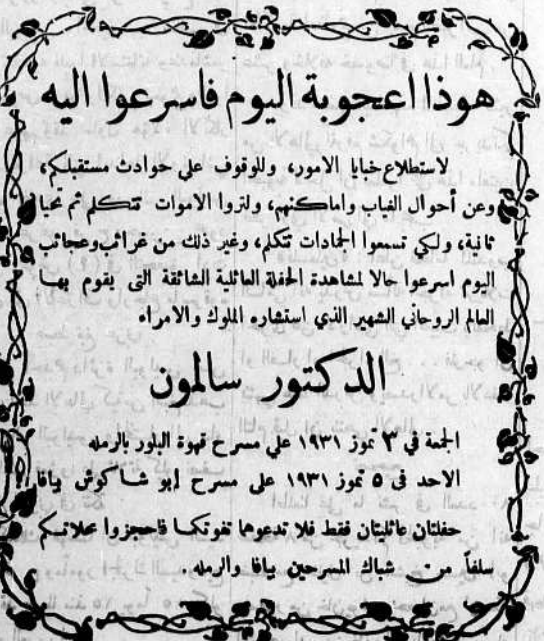 هوذا اعجوبة اليوم فاسرعوا اليه
لاستطلاع خبايا الامور، وللوقوف على حوادث مستقبلكم،
وعن أحوال الغياب واماكنهم، ولتروا الاموات تتكلم ثم تحيا
ثانية، ولكي تسمعوا الجمادات تتكلم، وغير ذلك من غرائب وعجائب
اليوم اسرعوا حالا لمشاهدة الحفلة العائلية الشائقة التي يقوم بها
العالم الروحاني الشهير الذي استشاره الملوك والامراء
الدكتور سالمون
الجمعة في ٣ تموز ١٩٣١ علي مسرح قهوة البلور بالرمله
الاحد في ٥ تموز ١٩٣١ على مسرح ابو شاكوش بيافا
حفلتان عائليتان فقط فلا تدعوها تفوتكما فاحجزوا محلاتكم
سلفاً من شباك المسرحين بيافا والرمله.